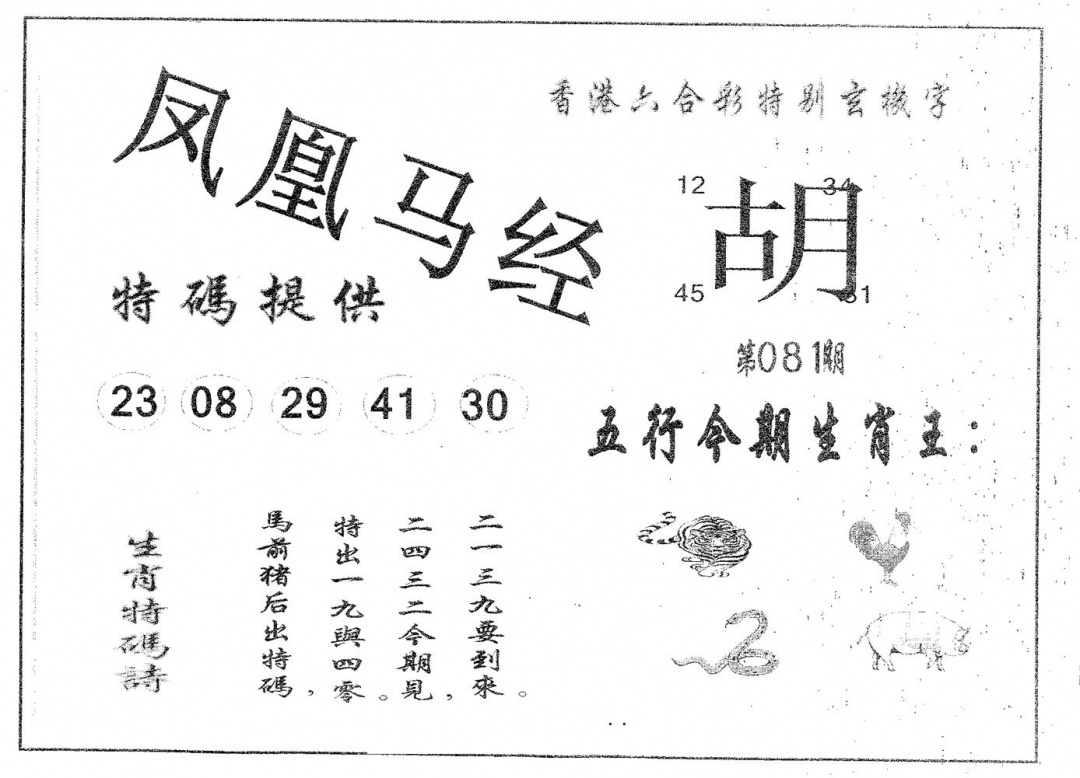 凤凰马经
香港六合彩特别玄機字
12 34
胡
45 31
特碼提供
第081期
23 08 29 41 30
五行今期生肖王：
生肖特碼詩
馬前猪后出特碼，
特出一九與四零。
二四三二今期見，
二一三九要到來。